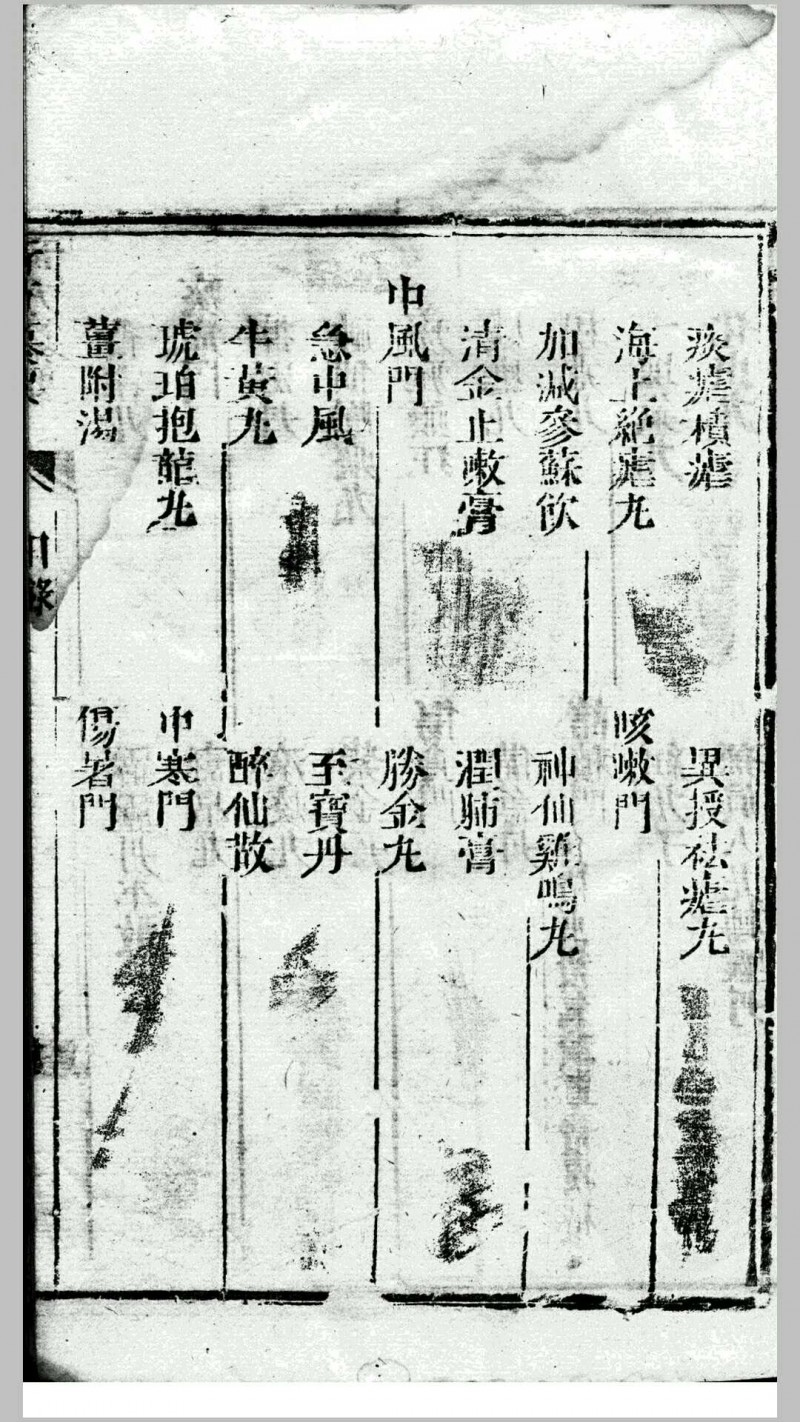 痰瘧積瘧
異授祛瘧丸
海上絶瘧丸
咳嗽門
加減參蘇飲
神仙雞鳴丸
清金止嗽膏
潤肺膏
中風門
勝金丸
急中風
至寶丹
牛黃丸
醉仙散
琥珀抱龍丸
中寒門
薑附湯
傷暑門
目錄